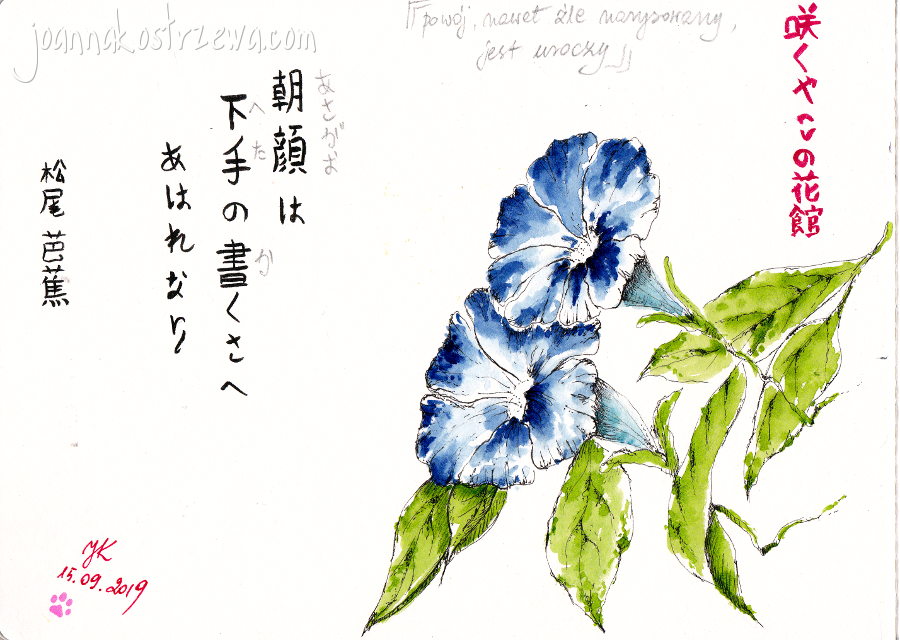 joannakostrzewa.com
「powój, nawet źle narysowany,
jest uroczy」
咲くやこの花館
あさがお
朝顔は
へた
か
下手の書くさへ
あはれなり
松尾芭蕉
JK
15.09.2019